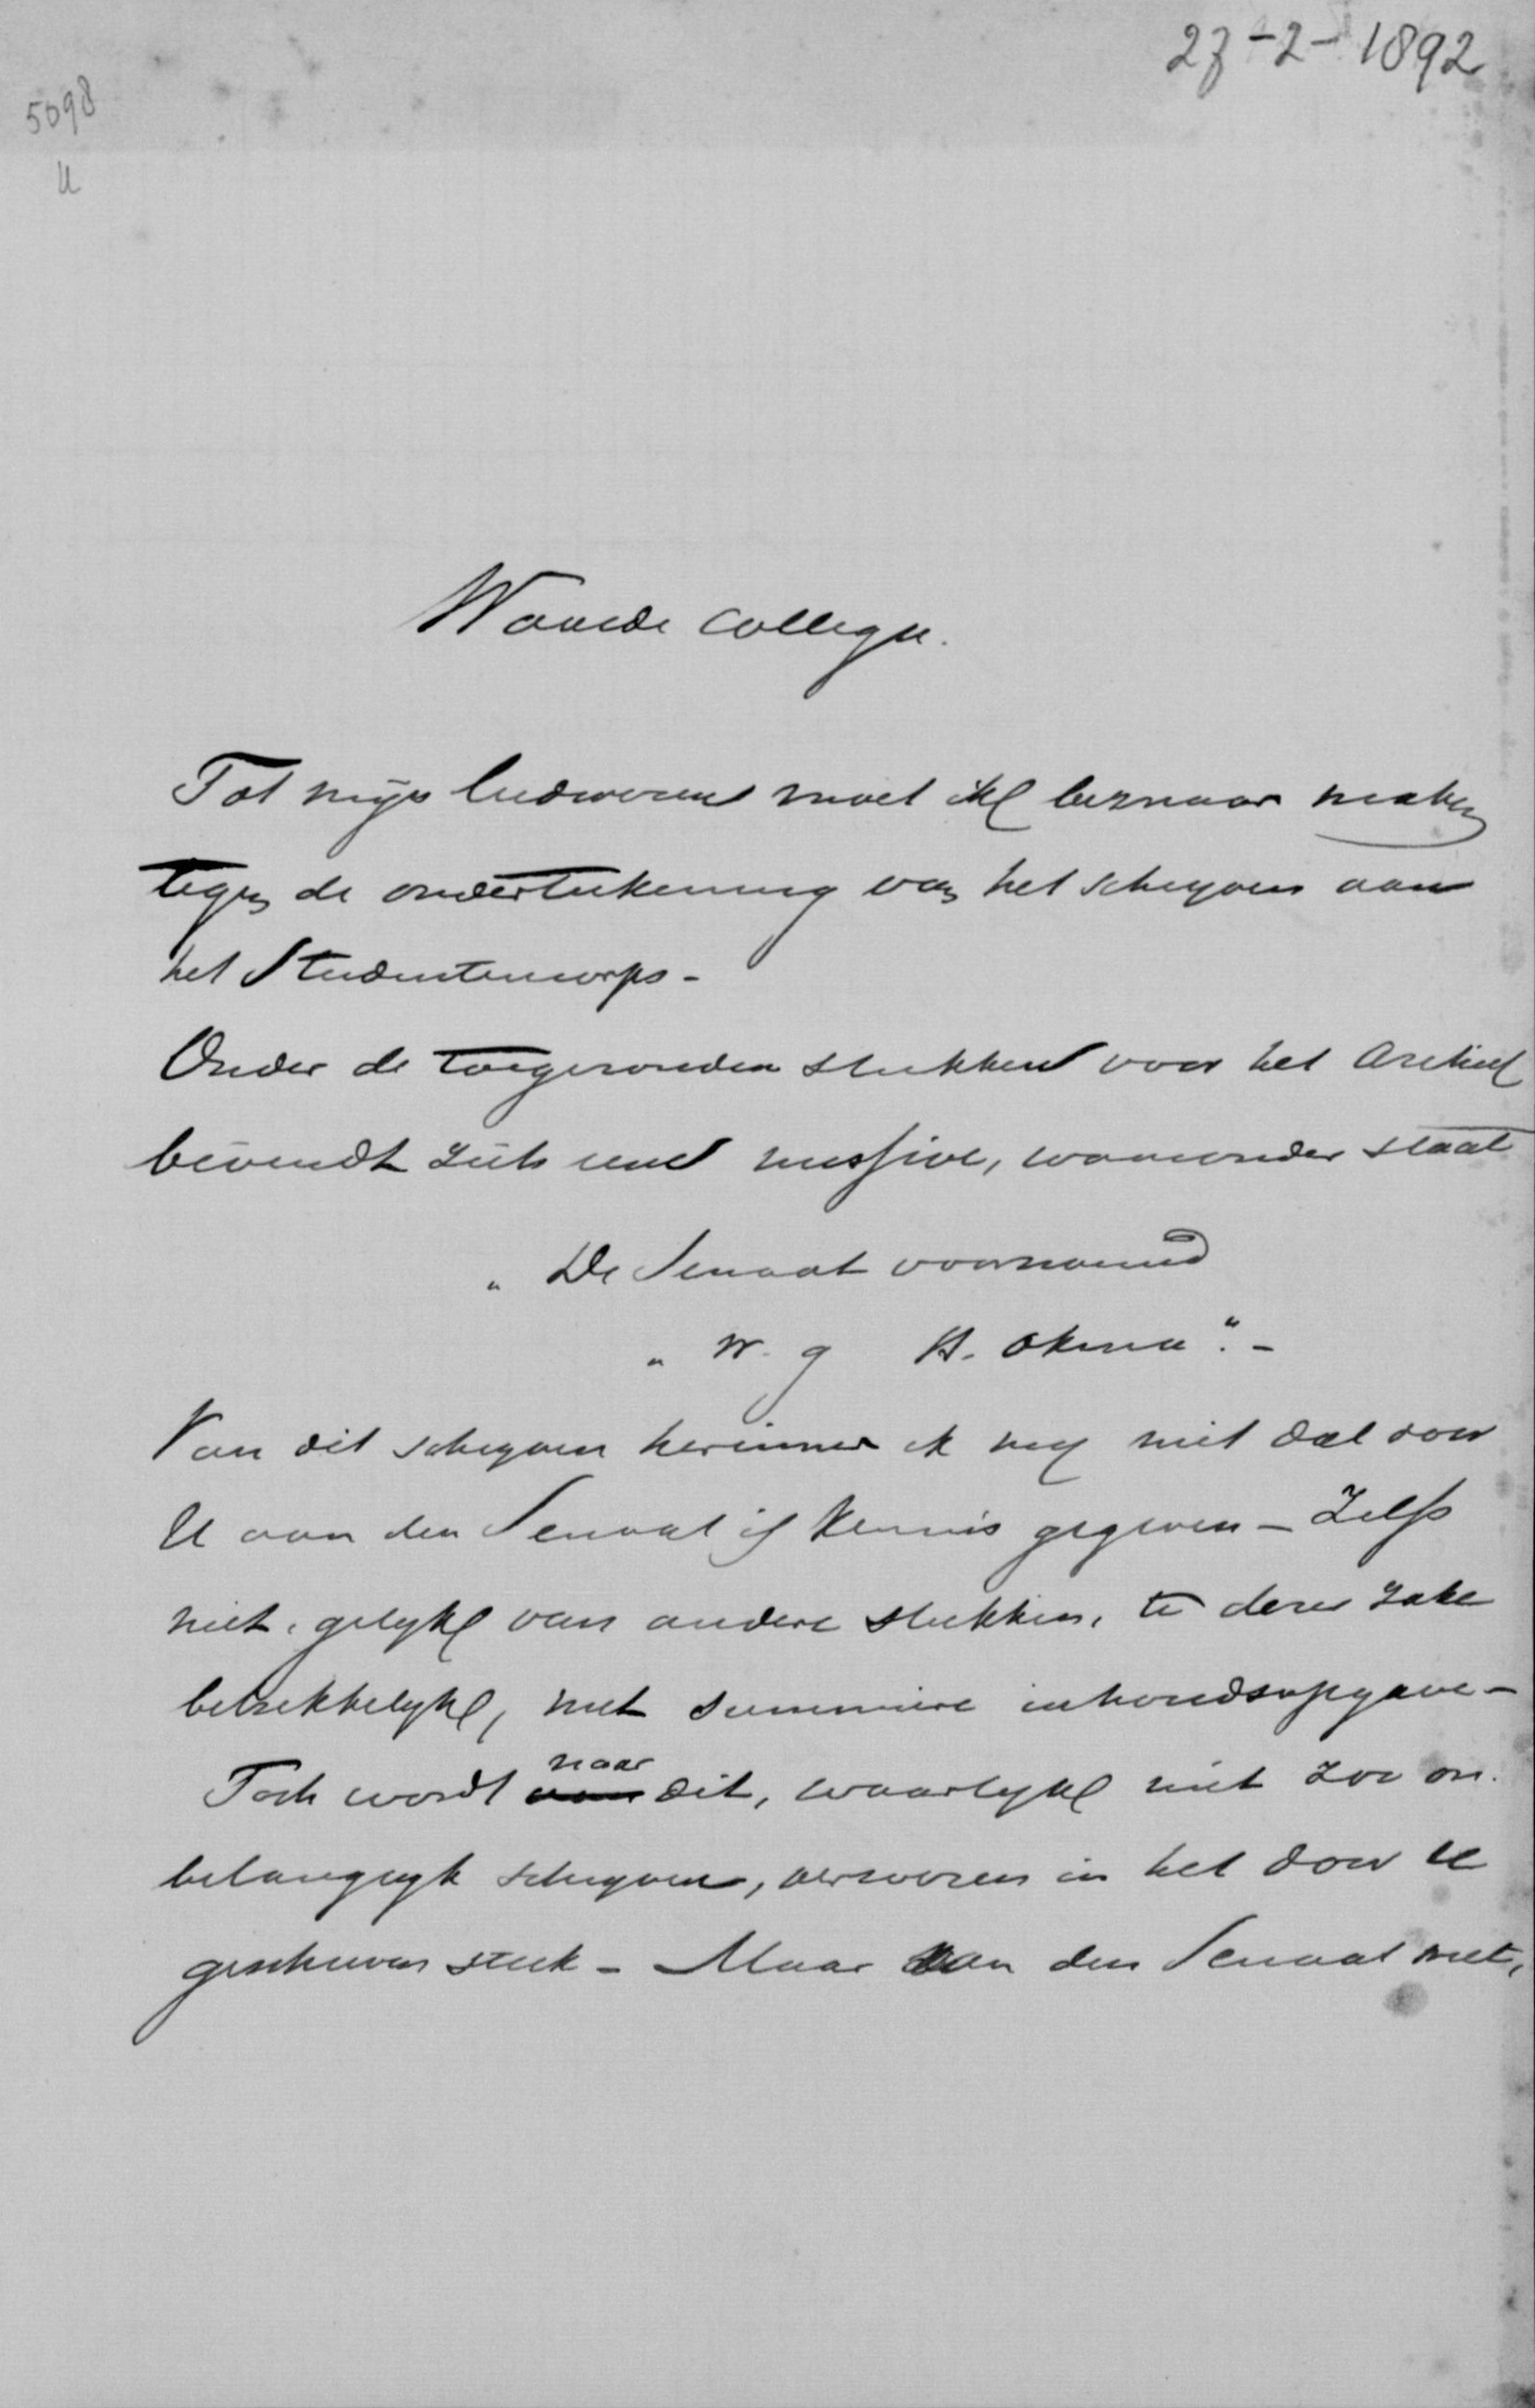 23-2-1892
5098
U
Waarde Collega.
Tot mijn leedwezen moet ik bezwaar maken
tegen de onderteekening van het schrijven aan
het Studentencorps -
Onder de toegezonden stukken voor het Archief
bevindt zich eene missive, waaronder staat
„ De Senaat voornoemd
„ w. g H. Okma". -
Van dit schrijven herinner ik mij niet dat door
U aan den Senaat is kennis gegeven - Zelfs
niet, gelijk van andere stukken, te dezer zake
betrekkelijk, met summiere inhoudsopgave -
Toch wordt naar dit, waarlijk niet zoo on-
belangrijk schrijven, verwezen in het door U
geschreven stuk - Maar aan den Senaat niet,